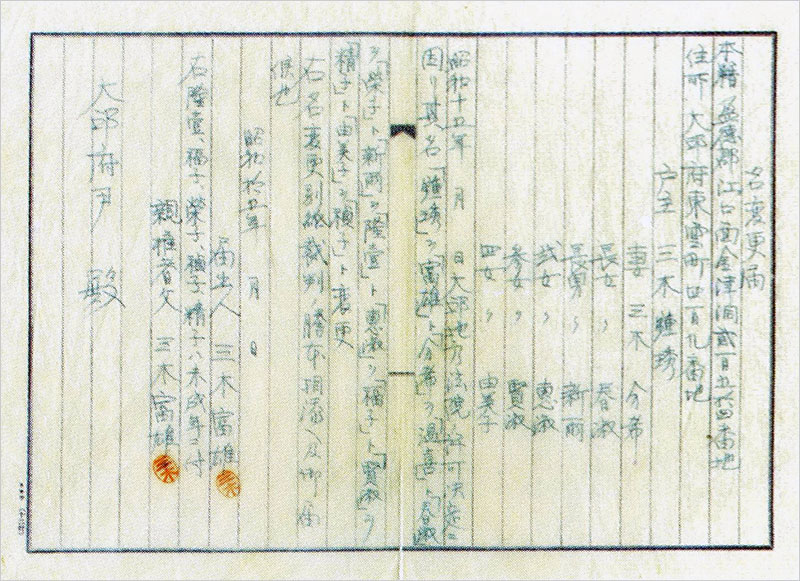 名変更届
本籍 盈徳郡江口面金津洞貳百五拾四番地
住所 大邱府東雲町廿百九番地
戸主 三木鍾琇
妻 三木 分希
長女 〃 春淑
長男 〃 新雨
弐女 〃 恵淑
参女 〃 賢淑
四女 〃 由美子
昭和十五年 月 日大邱地方法院ノ許可決定ニ
因リ其名「鍾琇」ヲ「富雄」ト「分希」ヲ「温喜」ト「春淑」
ヲ「榮子」ト「新雨」ヲ「隆壹」ト「恵淑」ヲ「福子」ト「賢淑」ヲ
「精子」ト「由美子」ヲ「禎子」ト変更
右名変更別紙裁判ノ謄本相添ヘ及御届
候也
昭和拾五年 月 日
届出人 三木富雄
右隆壹、福子、榮子、禎子、精子ハ未成年ニ付
親権者父 三木富雄
大邱府尹 殿